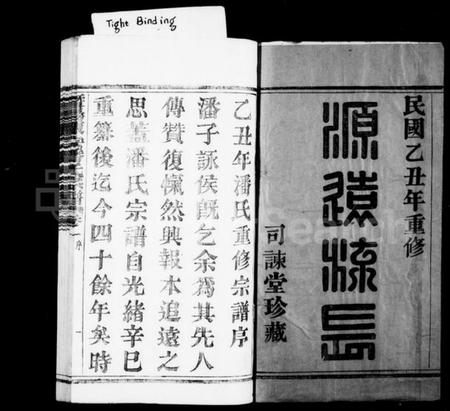 Tight Binding
民國乙丑年重修
源遠流長
司諫堂珍藏
乙丑年潘氏重修宗譜序
潘子詠侯既乞余為其先人
傳贊復慨然興報本追遠之
思蓋潘氏宗譜自光緒辛巳
重纂後迄今四十餘年矣時